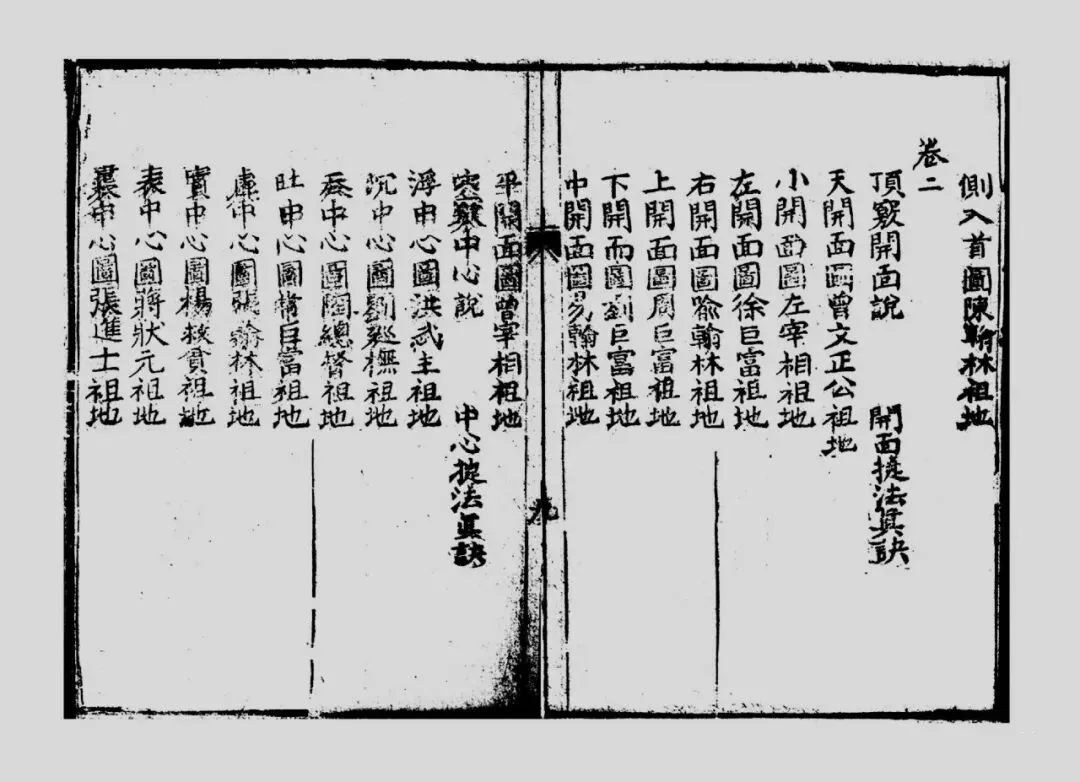 側入首圖陳翰林祖地
卷二
頂竅開面說　開面捷法眞訣
天開面圖曾文正公祖地
小開面圖左宰相祖地
左開面圖徐巨富祖地
右開面圖喻翰林祖地
上開面圖周巨富祖地
下開面圖劉巨富祖地
中開面圖易翰林祖地
九
平開面圖曾宰相祖地
空竅中心說　中心捷法眞訣
浮中心圖洪武主祖地
沉中心圖劉巡撫祖地
吞中心圖陶總督祖地
吐中心圖常巨富祖地
虛中心圖張翰林祖地
實中心圖楊拔貢祖地
表中心圖蔣狀元祖地
裏中心圖張進士祖地